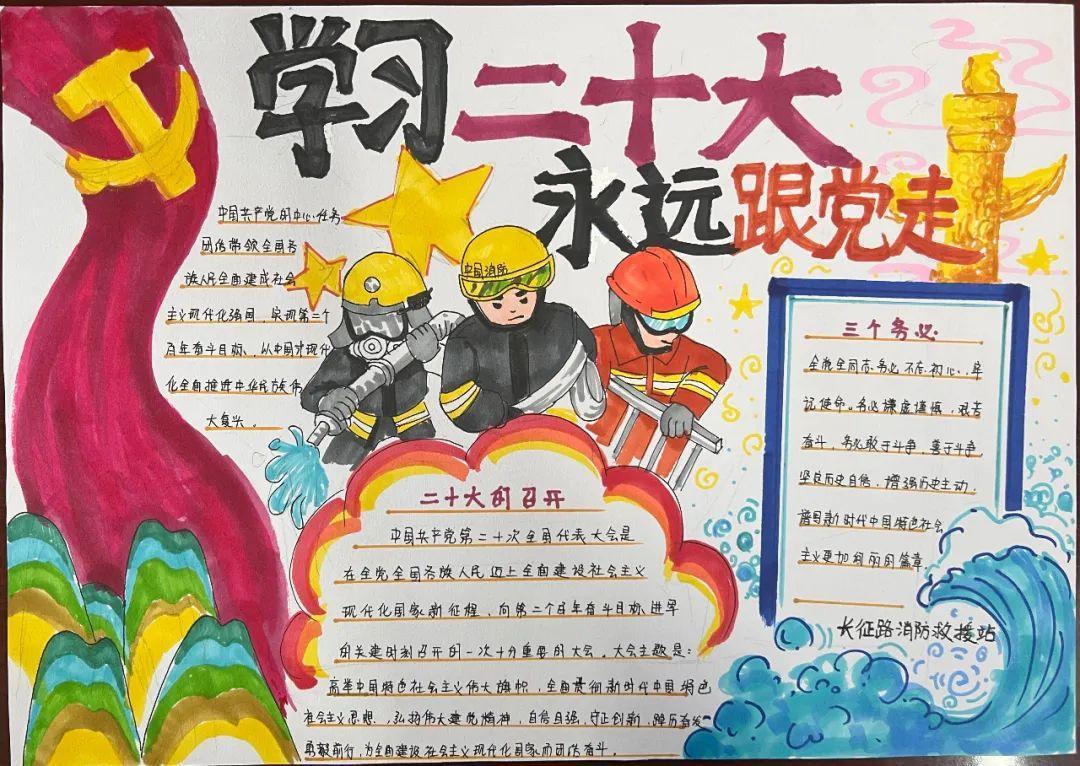 学习二十大
永远跟党走
中国共产党的中心任务
团结带领全国各
族人民全面建成社会
主义现代化强国、实现第二个
百年奋斗目标、以中国式现代
化全面推进中华民族伟
大复兴。
中国消防
二十大的召开
中国共产党第二十次全国代表大会是
在全党全国各族人民迈上全面建设社会主义
现代化国家新征程、向第二个百年奋斗目标进军
的关建时刻召开的一次十分重要的大会。大会主题是:
高举中国特色社会主义伟大旗帜、全面贯彻新时代中国特色
社会主义思想、弘扬伟大建党精神,自信自强、守正创新,踔厉奋发
勇毅前行,为全面建设社会主义现代化国家而团结奋斗。
三个务必
全党全同志务必不忘初心、牢
记使命。务必谦虚谨慎、艰苦
奋斗,务必敢于斗争、善于斗争,
坚定历史自信,增强历史主动,
谱写新时代中国特色社会
主义更加绚丽的篇章
长征路消防救援站